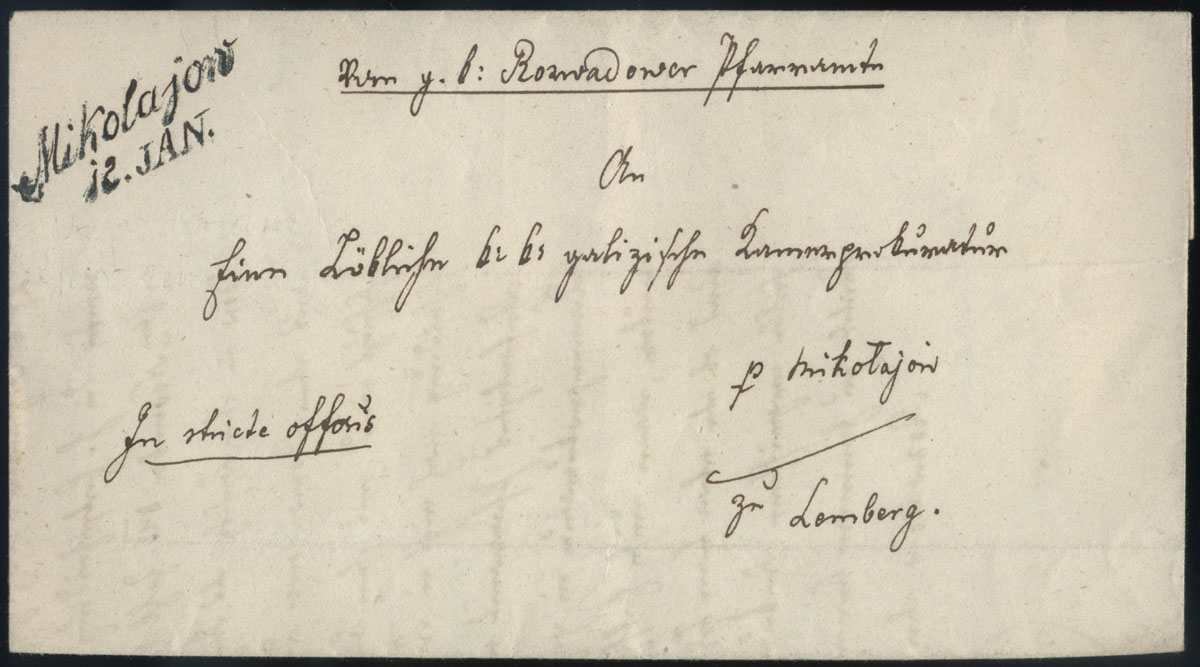 Mikolajow
12. JAN.
Vom g. k: Rozwadower Pfarramte
An
Eine Löbliche k: k: galizische Kamerprokuratur
p Mikołajow
In stricte offoris
zu Lemberg.